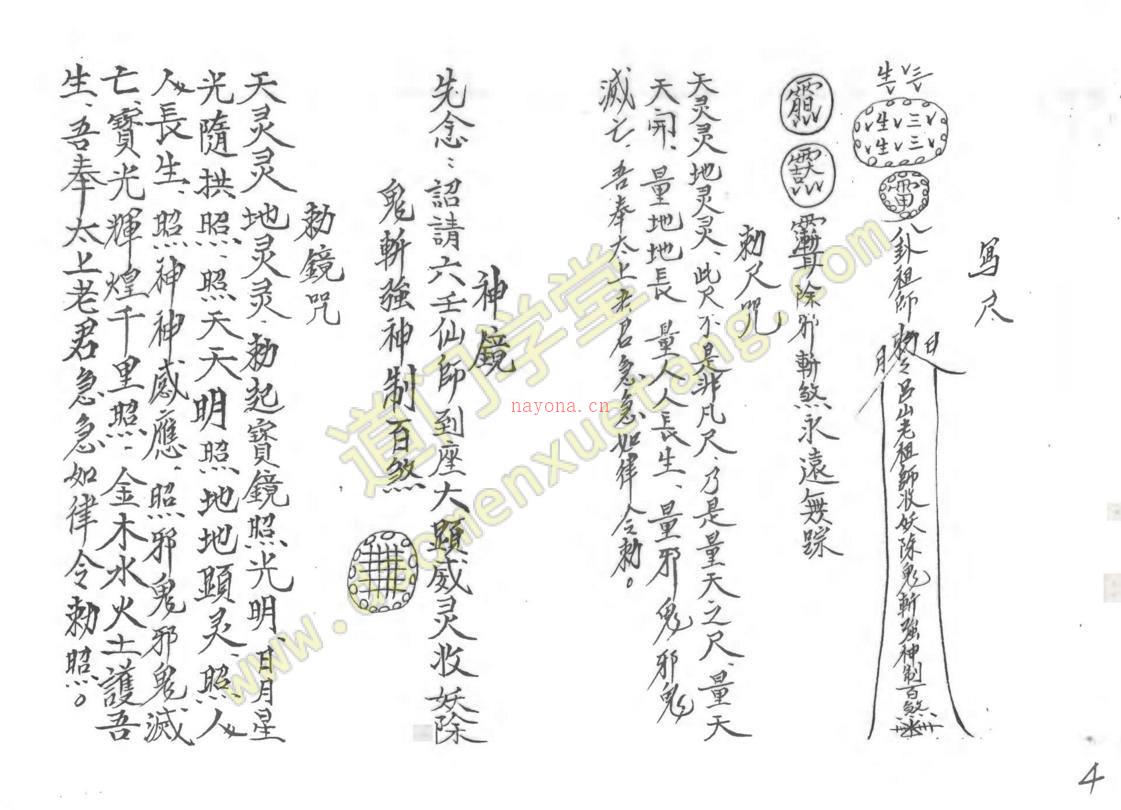 寫尺
八卦祖師
日
月
勅令呂山老祖師收妖除鬼斬強神制百煞
除邪斬煞永遠無踪
勅尺咒
天灵灵地灵灵、此尺不是非凡尺、乃是量天之尺、量天
天開、量地地長、量人人長生、量邪鬼邪鬼
滅亡、吾奉太上老君急急如律令勅。
神鏡
先念：詔請六壬仙師到座大顕威灵收妖除
鬼斬強神制百煞
勅鏡咒
天灵灵地灵灵、勅起寶鏡照光明、日月星
光隨拱照、照天天明照地地顕灵、照人
人長生、照神神感應、照邪鬼邪鬼滅
亡、寶光輝煌千里照、金木水火土護吾
生、吾奉太上老君急急如律令勅照。
道门学堂
www.daomenxuetang.com
nayona.cn
4